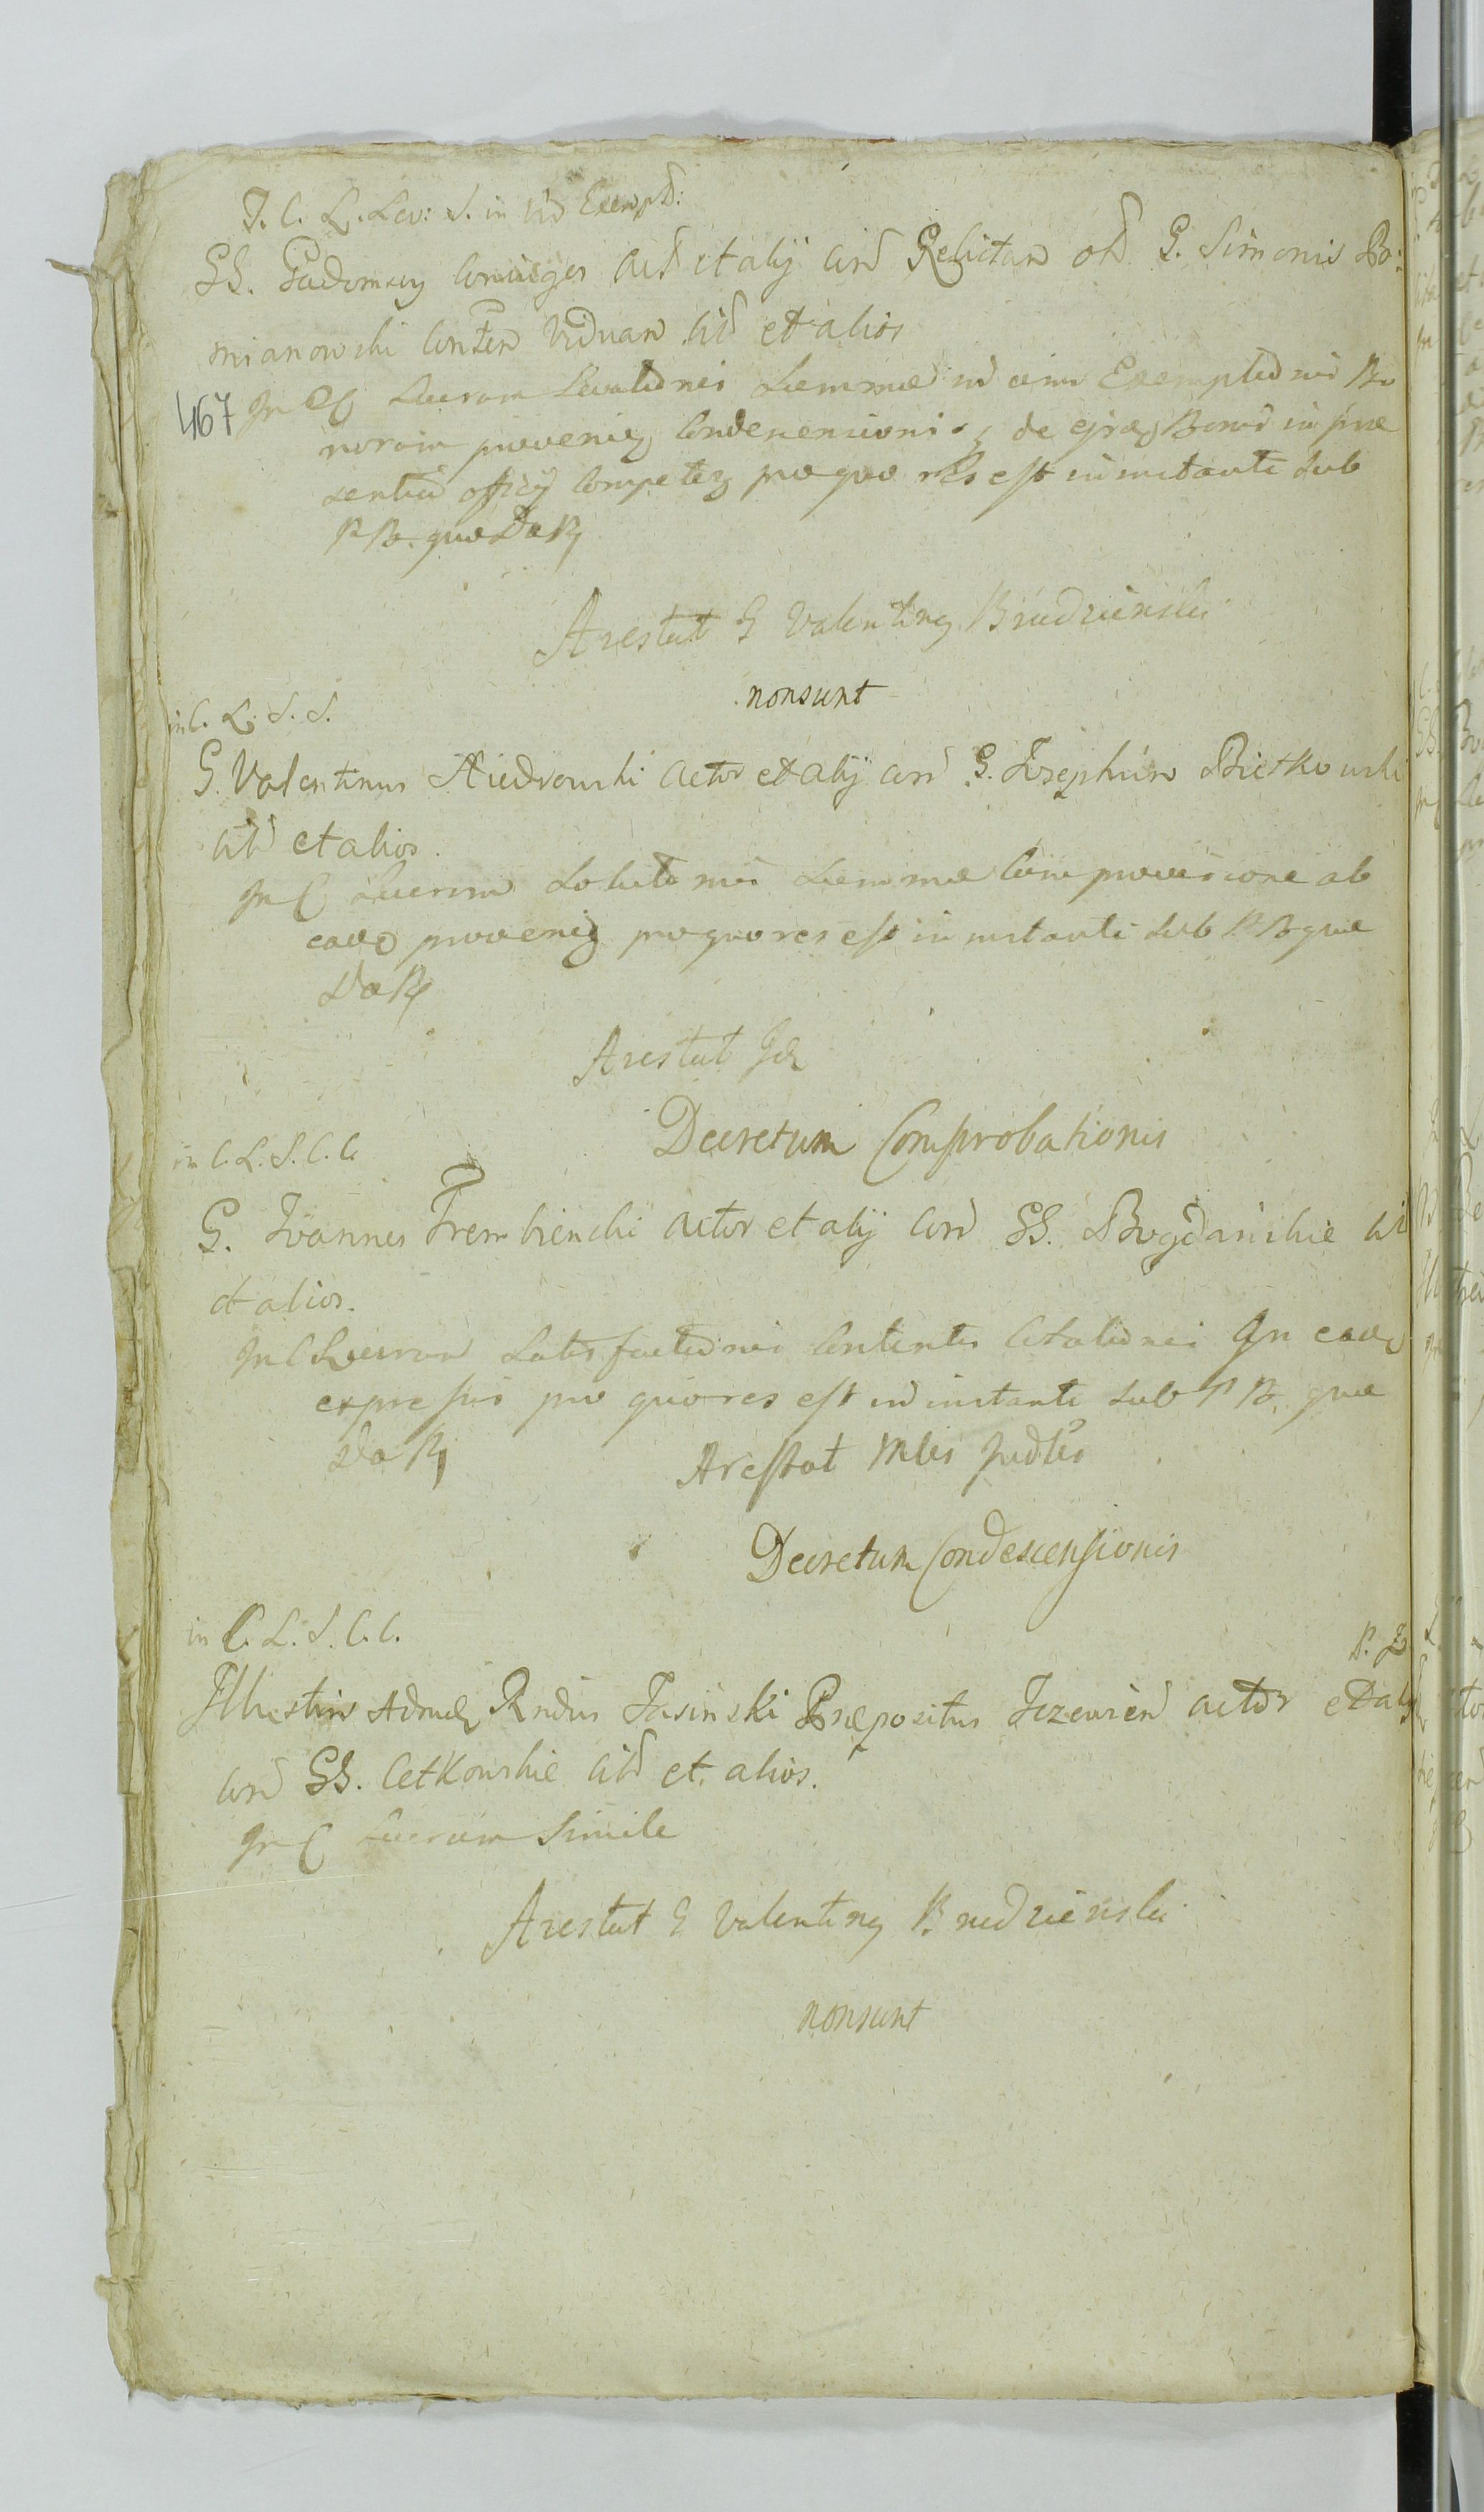 J. C. L. Lev: S. in Vid Exempt:
GG. Gadomscy Coniuges Act et alij con Relictam ol G. Simonis Bo-
mianowski Conten Viduam Cit et alios
467 In C Lucrum Levationis Summæ in vim Exemptionis Bo
norum provenien Condescensionis, de ejsd Bonis in præ
sentia officij Competen pro quo res est in instanti sub
PB. quæ Da R
Arestat G Valentinus Brudzienski
nonsunt
in C. L. S. S.
G. Valentinus Niedrowski actor et alij con G. Josephum Bietkowski
Cit et alios.
In C Lucrum Solutionis Summæ Cum provisione ab
eadem provenien pro quo res est in instanti sub PB quæ
Da R
Arestat Id
Decretum Comprobationis
in C. L. S. C. C.
G. Joannes Trembienski actor et alij con GG. Bogdanskie Cit
et alios.
In C Lucrum Satisfactionis Contentis Citationis In eadem
expressis pro quo res est in instanti sub PB. quæ
Da R Arestat Mles Judlis
Decretum Condescensionis
in C. L. S. C. C.
Illustris Admd Rndus Jasinski Præpositus Jezevien actor et alij
con GG. Cetkowskie Cit et alios.
In C Lucrum Simile
Arestat G Valentinus Brudzienski
nonsunt